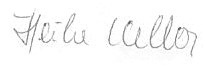 Heike Kellor